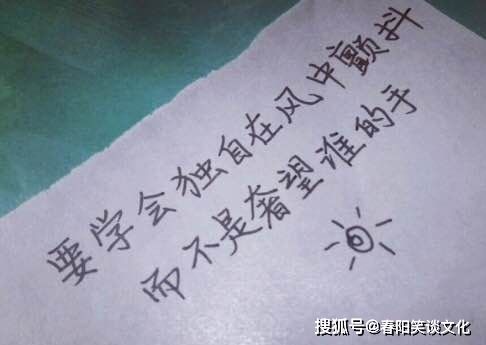 要学会独自在风中颤抖
而不是奢望谁的手
搜狐号@春阳笑谈文化